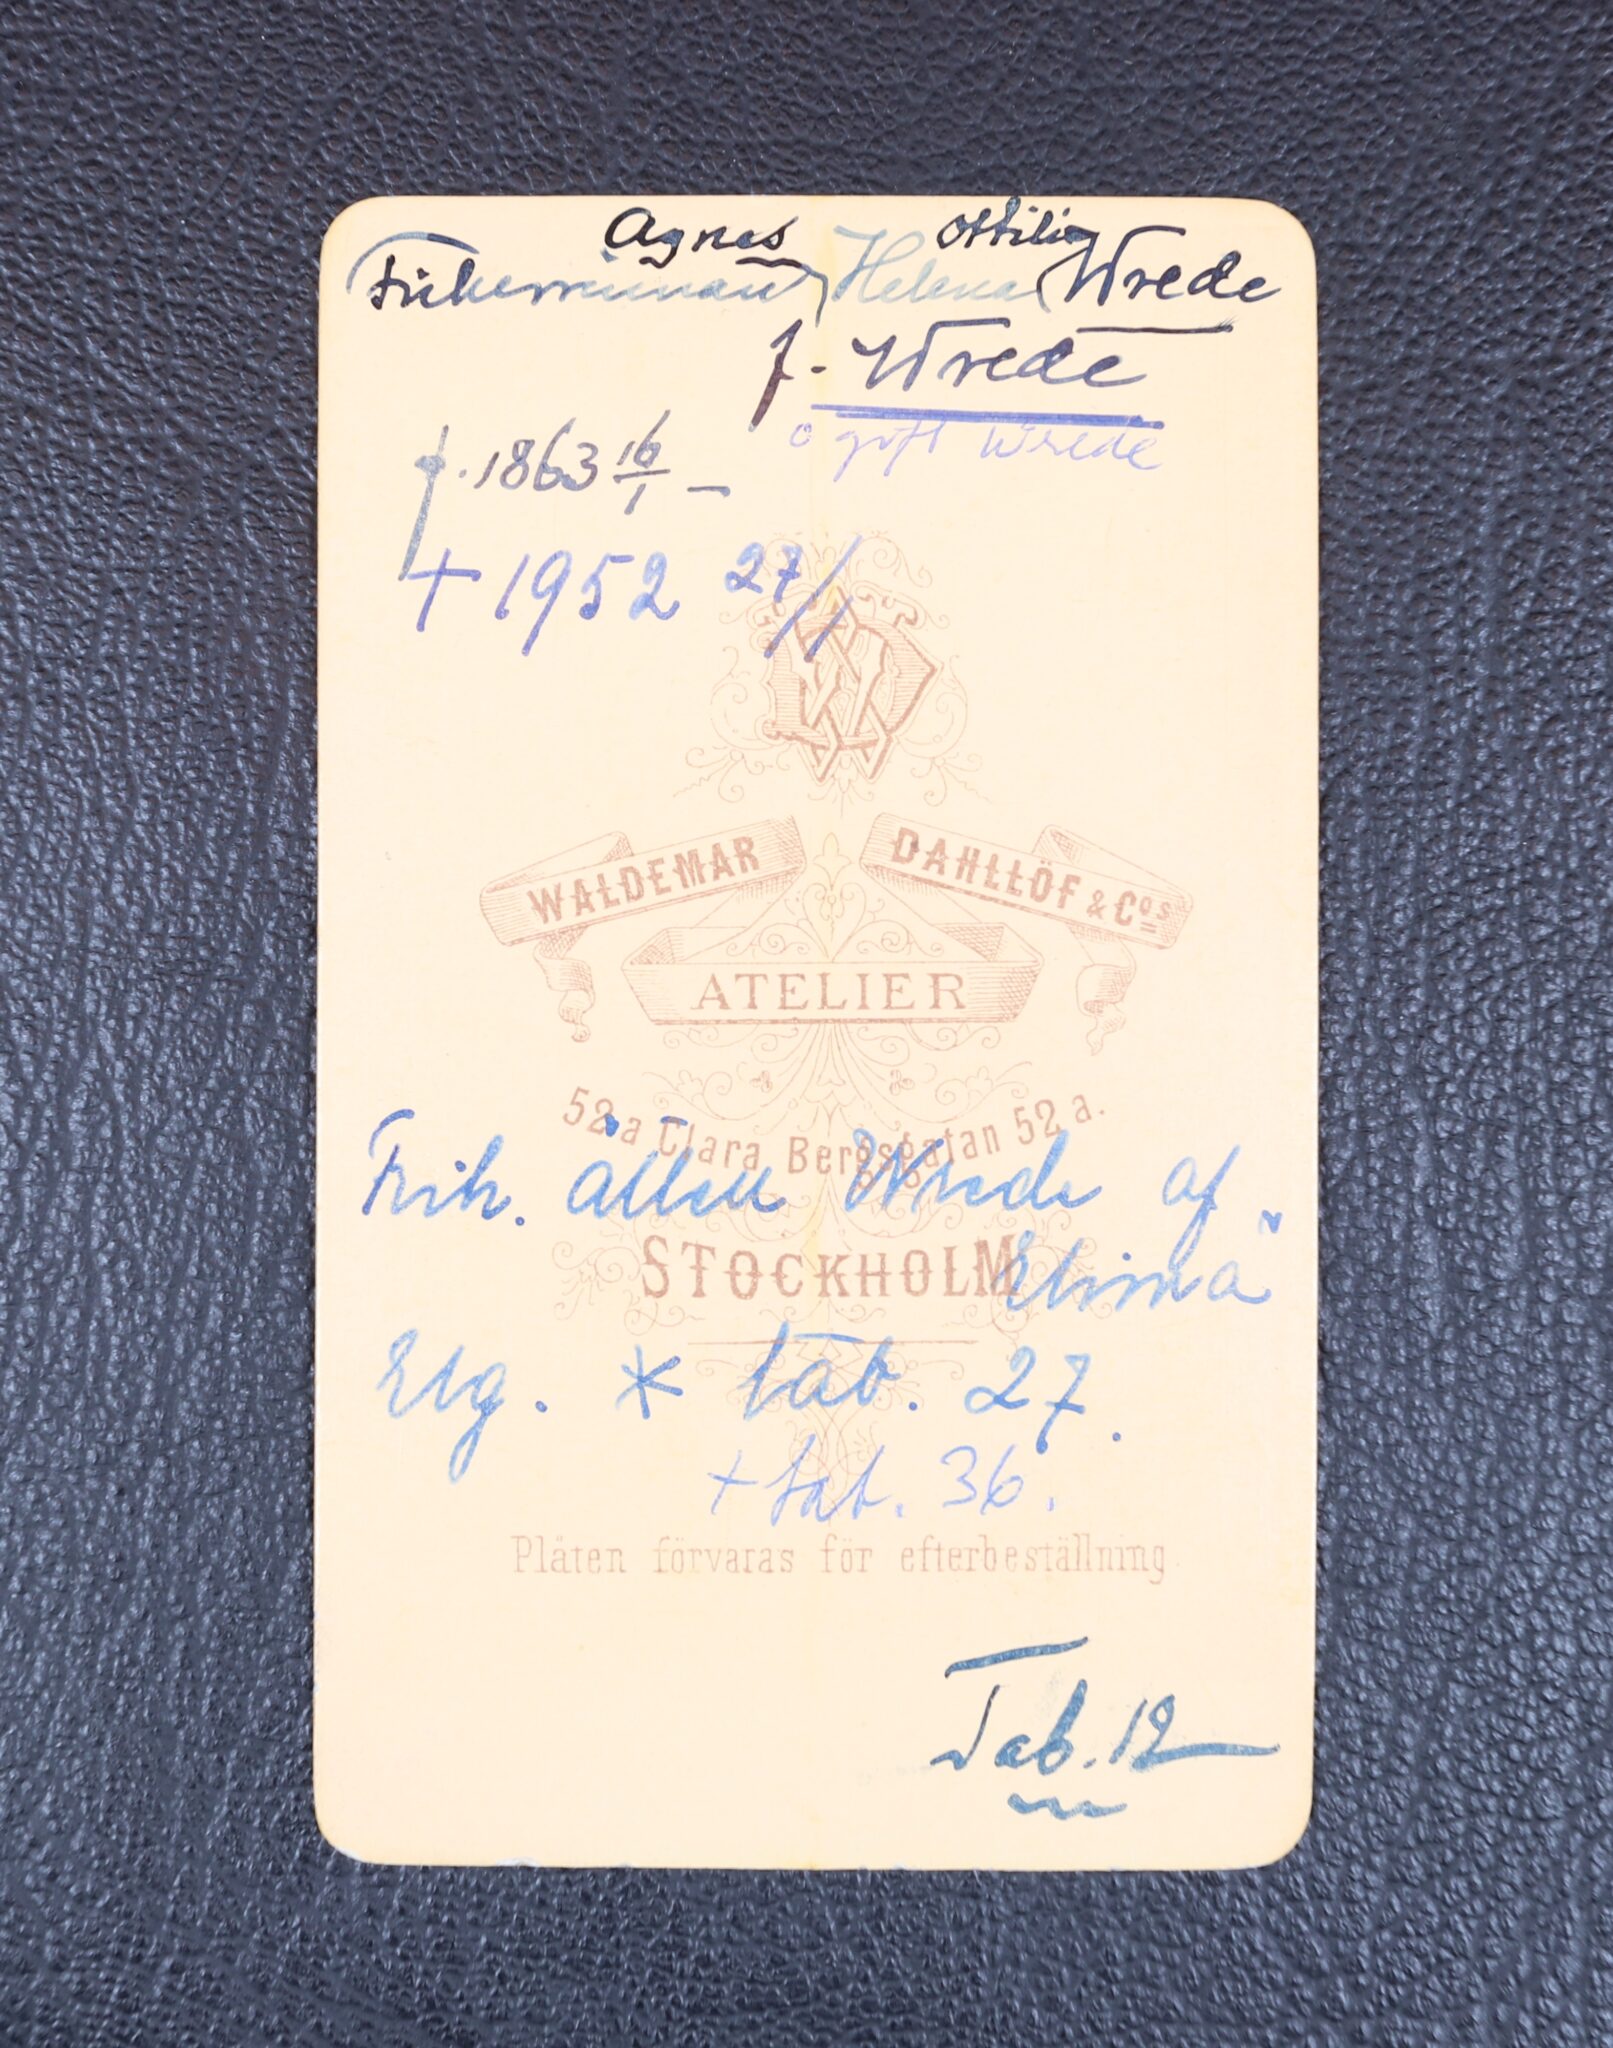 Agnes Ottilia
Friherrinnan Helena Wrede
f. Wrede
o gift Wrede
f. 1863 16/1 –
+ 1952 27/1
WALDEMAR DAHLLÖF & Cos
ATELIER
52 a Clara Bergsgatan 52 a.
Frih. ätten Wrede af
STOCKHOLM
Elimä
Elg. * tab. 27.
+ tab. 36.
Plåten förvaras för efterbeställning
Tab. 12